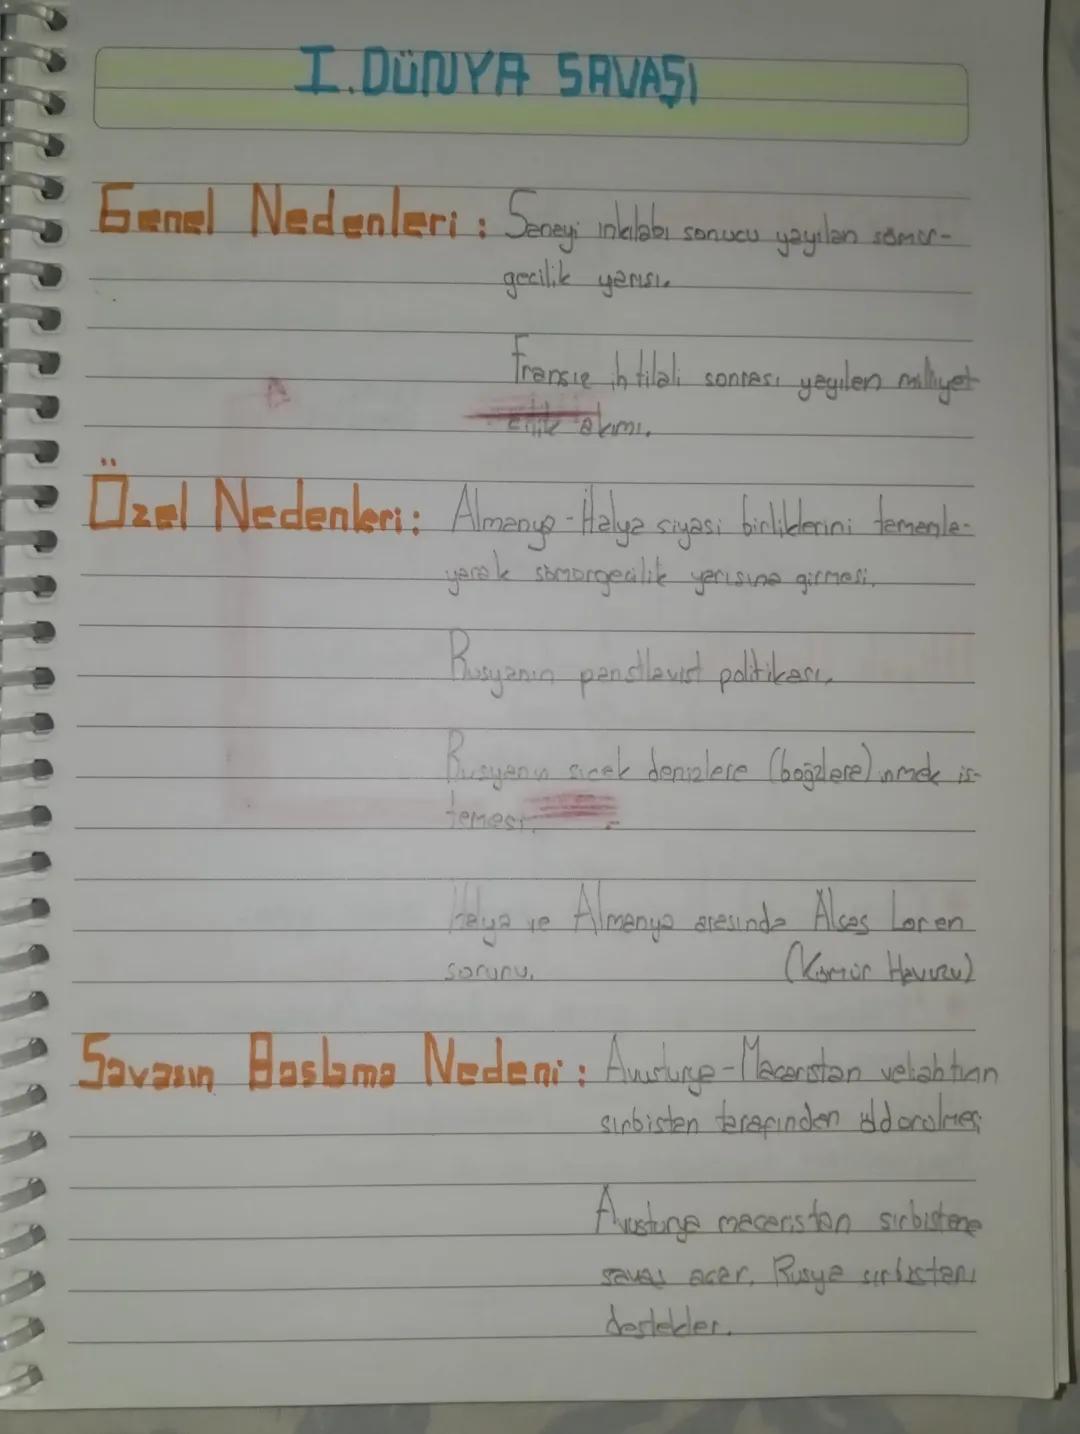 I. DÜNYA SAVAŞI
Genel Nedenleri : Saneyi inkılabı sonucu yayılan sömür-
gecilik yarışı.
Fransız ihtilali sonrası yayılan milliyet
cilik akımı.
Özel Nedenleri : Almanya - İtalya siyasi birliklerini tamamla-
yarak sömürgecilik yarısına girmesi.
Rusyanın panstlavist politikası.
Rusyanın sıcak denizlere (boğzlere) inmek is-
temesi.
İtalya ve Almanya arasında Alsas Loren
sorunu. (Kömür Havuzu)
Savasın Baslama Nedeni : Avusturya - Macaristan veliahtının
sırbistan tarafından öldürülmesi
Avusturya macaristan sırbistana
savaş acar. Rusya sırbistanı
destekler.